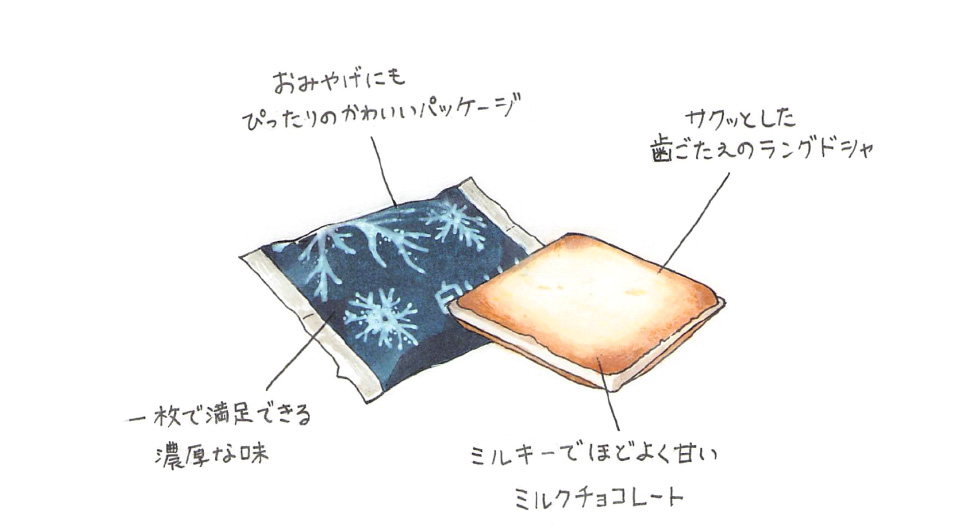 おみやげにも
ぴったりのかわいいパッケージ
サクッとした
歯ごたえのラングドシャ
白い
一枚で満足できる
濃厚な味
ミルキーでほどよく甘い
ミルクチョコレート